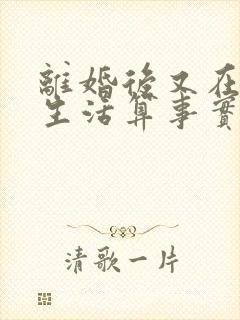 離婚後又在
生活算事實
清歌一片